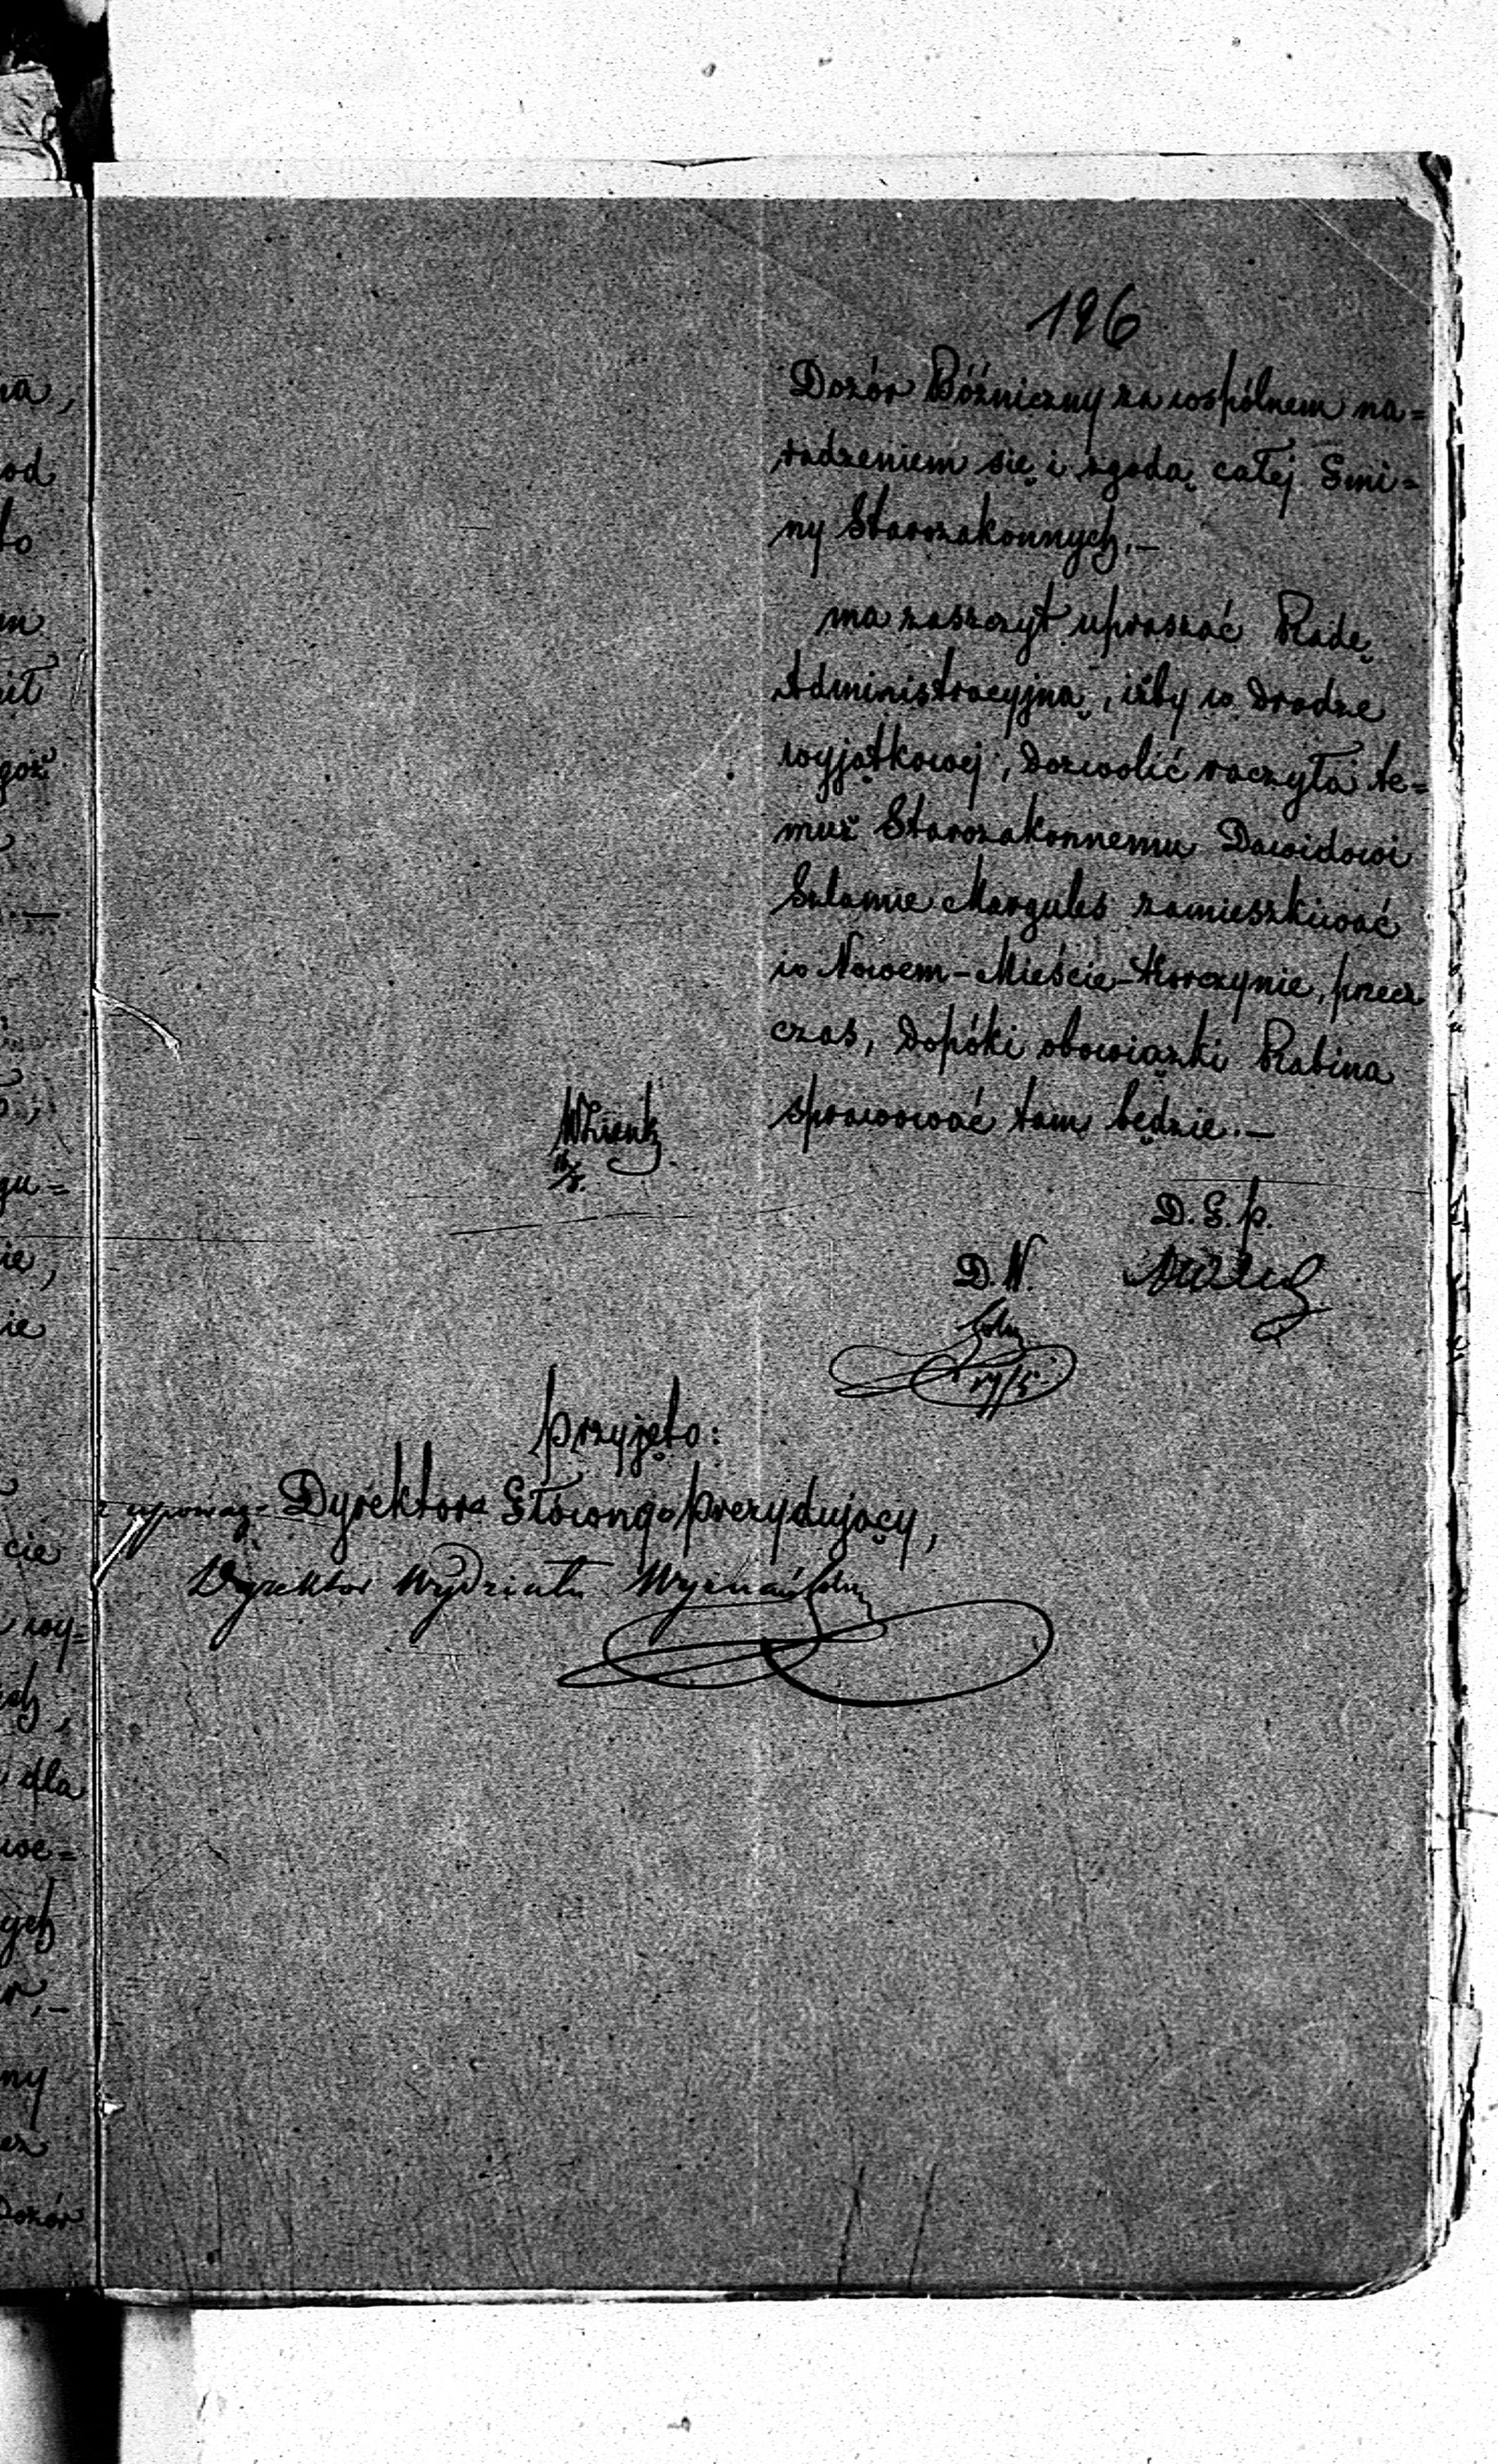 196
Dozór Bóźniczny za wspólnem na=
radzeniem się i zgodą całej Gmi=
ny Starozakonnych.—
ma zaszczyt upraszać Radę
Administracyjną, iżby w drodze
wyjątkowej, dozwolić raczyła te=
muż Starozakonnemu Dawidowi
Szlamie Margules zamieszkiwać
w Nowem-Mieście-Korczynie, przez
czas, dopóki obowiązki Rabina
sprawować tam będzie.—
D. G. P.
D. W.
17/5
Przyjęto:
z upoważ= Dyrektora Głównego Prezydujący,
Dyrektor Wydziału Wyznań